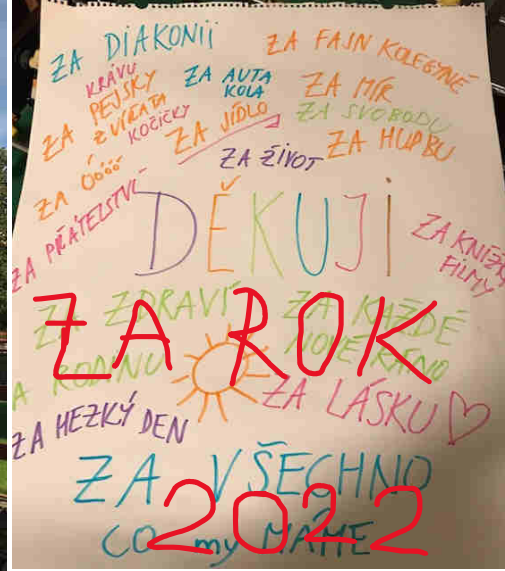 ZA DIAKONII
ZA FAJN KOLEGYNĚ
KRÁVU
ZA PEJSKY
ZVÍŘATA
KOČIČKY
ZA AUTA
KOLA
ZA MÍR
ZA SVOBODU
ZA JÍDLO
ZA HUDBU
ZA ŽIVOT
ZA Óóóó
ZA PŘÁTELSTVÍ
DĚKUJI
ZA KNÍŽKY
FILMY
ZA ZDRAVÍ
ZA KAŽDÉ
NOVÉ RÁNO
ZA ROK
A RODINU
ZA LÁSKU
ZA HEZKÝ DEN
ZA VŠECHNO
CO my MÁME
2022